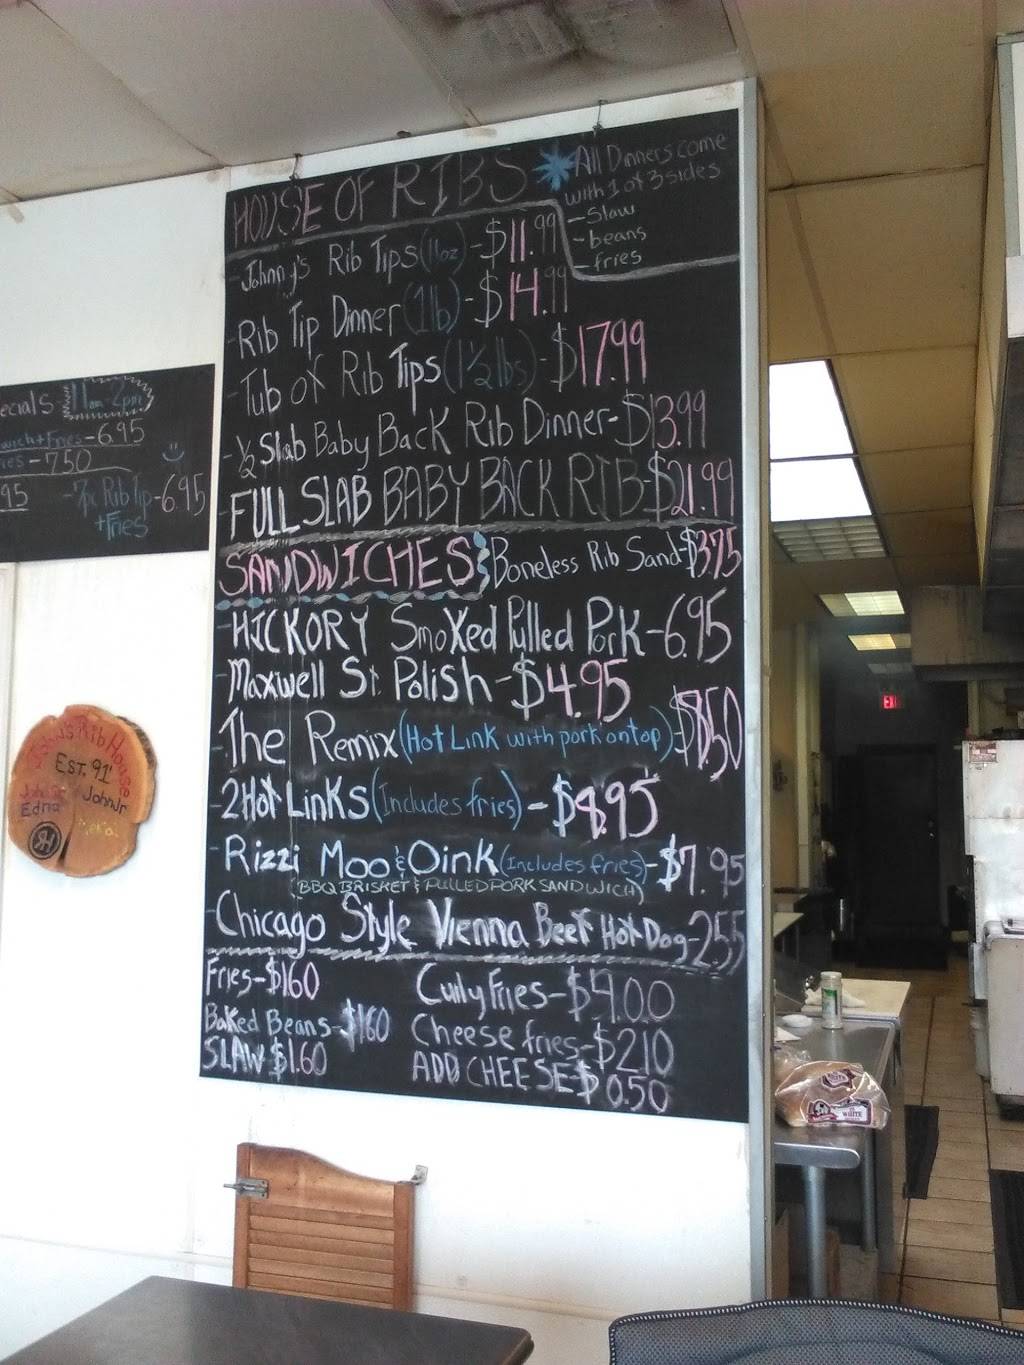 HOUSE OF RIBS
All Dinners come
with 1 of 3 sides
- Slaw
- beans
- fries
- Johnny's Rib Tips (11oz) - $11.99
- Rib Tip Dinner (1lb) - $14.99
- Tub of Rib Tips (1 1/2 lbs) - $17.99
- 1/2 Slab Baby Back Rib Dinner - $13.99
- FULL SLAB BABY BACK RIB - $21.99
SANDWICHES
Boneless Rib Sand - $3.75
- HICKORY Smoked Pulled Pork - 6.95
- Maxwell St. Polish - $4.95
- The Remix (Hot Link with pork on top) - $8.50
- 2 Hot Links (Includes fries) - $8.95
- Rizzi Moo & Oink (Includes fries) - $7.95
(BBQ BRISKET & PULLED PORK SANDWICH)
- Chicago Style Vienna Beef Hot Dog - 255
Fries - $160
Curly Fries - $4.00
Baked Beans - $160
Cheese fries - $210
SLAW $1.60
ADD CHEESE - $0.50
ecials 11am-2pm
wich + Fries - 6.95
ies - 7.50
95
- 7oz Rib Tip - 6.95
+ Fries
John's Rib House
EST. 91'
John Sr
Edna
John Jr
RH
WHITE